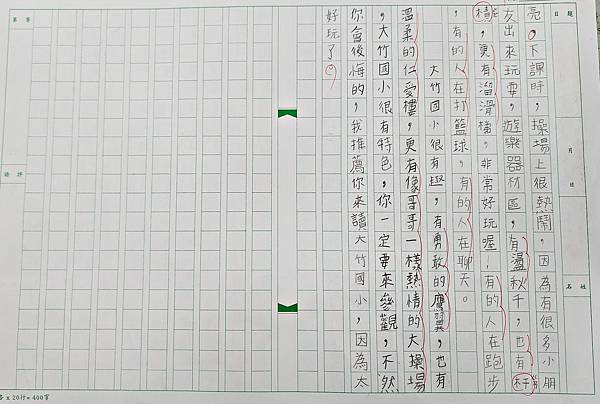 亮，下課時，操場上很熱鬧，因為有很多小朋
友出來玩耍，遊樂器材區，有盪秋千，也有
槓，更有溜滑梯，非常好玩喔！有的人在跑步
，有的人在打籃球，有的人在聊天。
大竹國小很有趣，有勇敢的鷹翼，也有
溫柔的仁愛樓，更有像哥哥一樣熱情的大操場
，大竹國小很有特色，你一定要來參觀，不然
你會後悔的，我推薦你來讀大竹國小，因為太
好玩了。
題目
月 日
姓名
評語
等第
x 20行= 400字